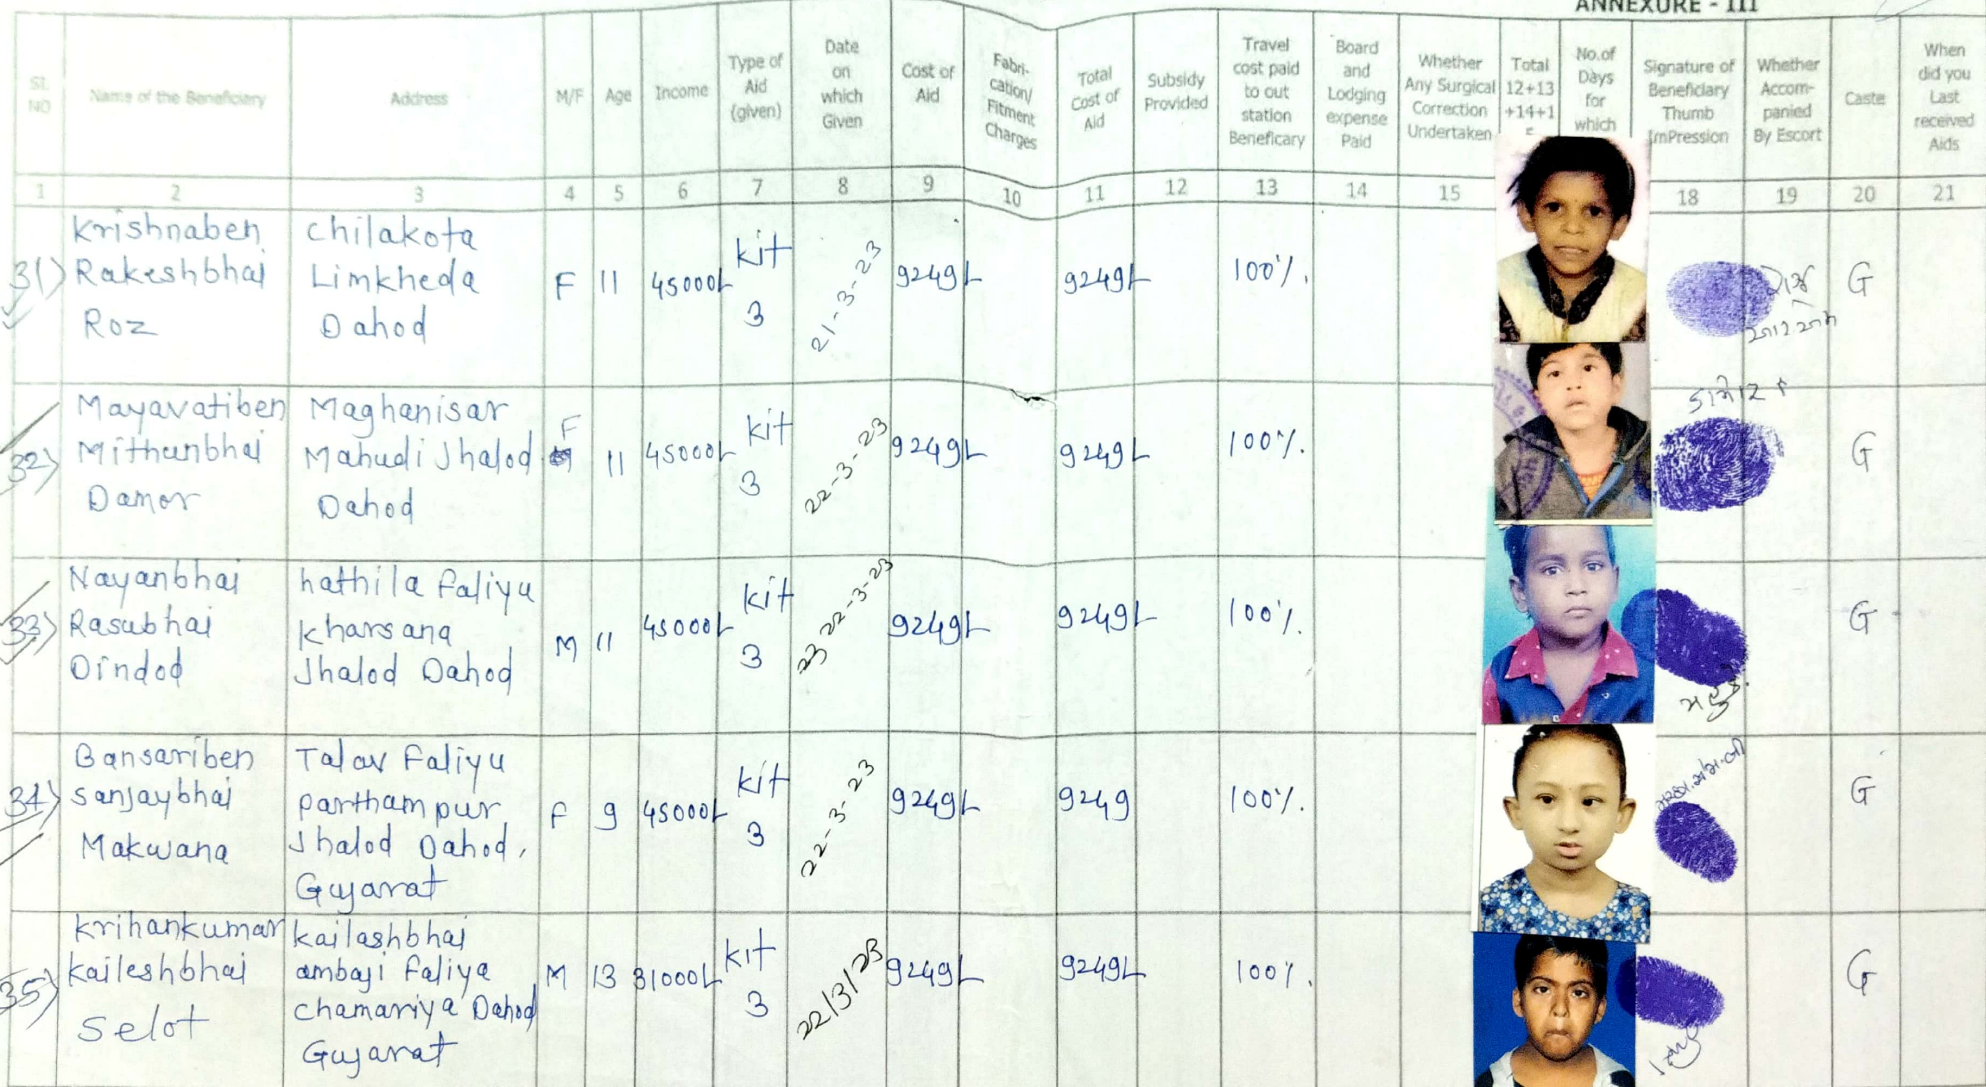 ANNEXURE - III
Sl. NO
Name of the Beneficiary
Address
M/F
Age
Income
Type of
Aid
(given)
Date
on
which
Given
Cost of
Aid
Fabri-
cation/
Fitment
Charges
Total
Cost of
Aid
Subsidy
Provided
Travel
cost paid
to out
station
Beneficary
Board
and
Lodging
expense
Paid
Whether
Any Surgical
Correction
Undertaken
Total
12+13
+14+1
No.of
Days
for
which
Signature of
Beneficiary
Thumb
ImPression
Whether
Accom-
panied
By Escort
Caste
When
did you
Last
received
Aids
1 2 3 4 5 6 7 8 9 10 11 12 13 14 15 18 19 20 21
31)
Krishnaben
Rakeshbhai
Roz
Chilakota
Limkheda
Dahod
F
11
45000/-
kit
3
21-3-23
9249/-
9249/-
100%.
G
32)
Mayavatiben
Mithunbhai
Damor
Maghanisar
Mahudi Jhalod
Dahod
F
11
45000/-
kit
3
22-3-23
9249/-
9249/-
100%.
G
33)
Nayanbhai
Rasubhai
Dindod
hathila faliyu
kharsana
Jhalod Dahod
M
11
45000/-
kit
3
22-3-23
9249/-
9249/-
100%.
G
34)
Bansariben
Sanjaybhai
Makwana
Talav Faliyu
parthampur
Jhalod Dahod,
Gujarat
F
9
45000/-
kit
3
22-3-23
9249/-
9249
100%.
G
35)
Krihankumar
kaileshbhai
Selot
kailashbhai
ambaji faliya
chamariya Dahod
Gujarat
M
13
31000/-
kit
3
22/3/23
9249/-
9249/-
100%.
G